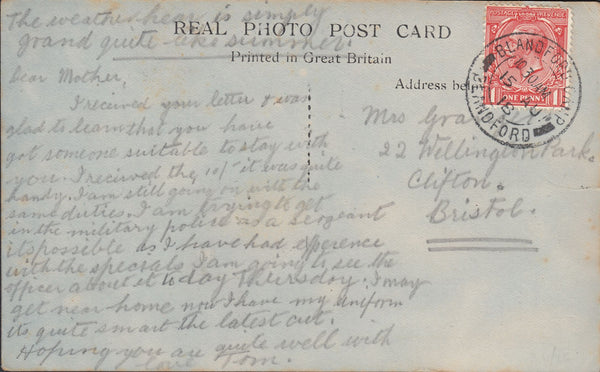 The weather here is simply
grand quite like summer.
REAL PHOTO POST CARD
Printed in Great Britain
Address below
Dear Mother,
I received your letter & was
glad to learn that you have
got someone suitable to stay with
you. I recieved the 10/- it was quite
handy. I am still going on with the
same duties. I am trying to get
in the military police as a sergeant
its possible as I have had experence
with the specials I am going to see the
officer about it to day Thursday. I may
get near home now I have my uniform
its quite smart the latest cut.
Hoping you are quite well with
love Tom.
Mrs Gra
22 Wellington Park.
Clifton.
Bristol.
POSTAGE REVENUE
ONE PENNY
BLANDFORD CAMP
15
18
BLANDFORD